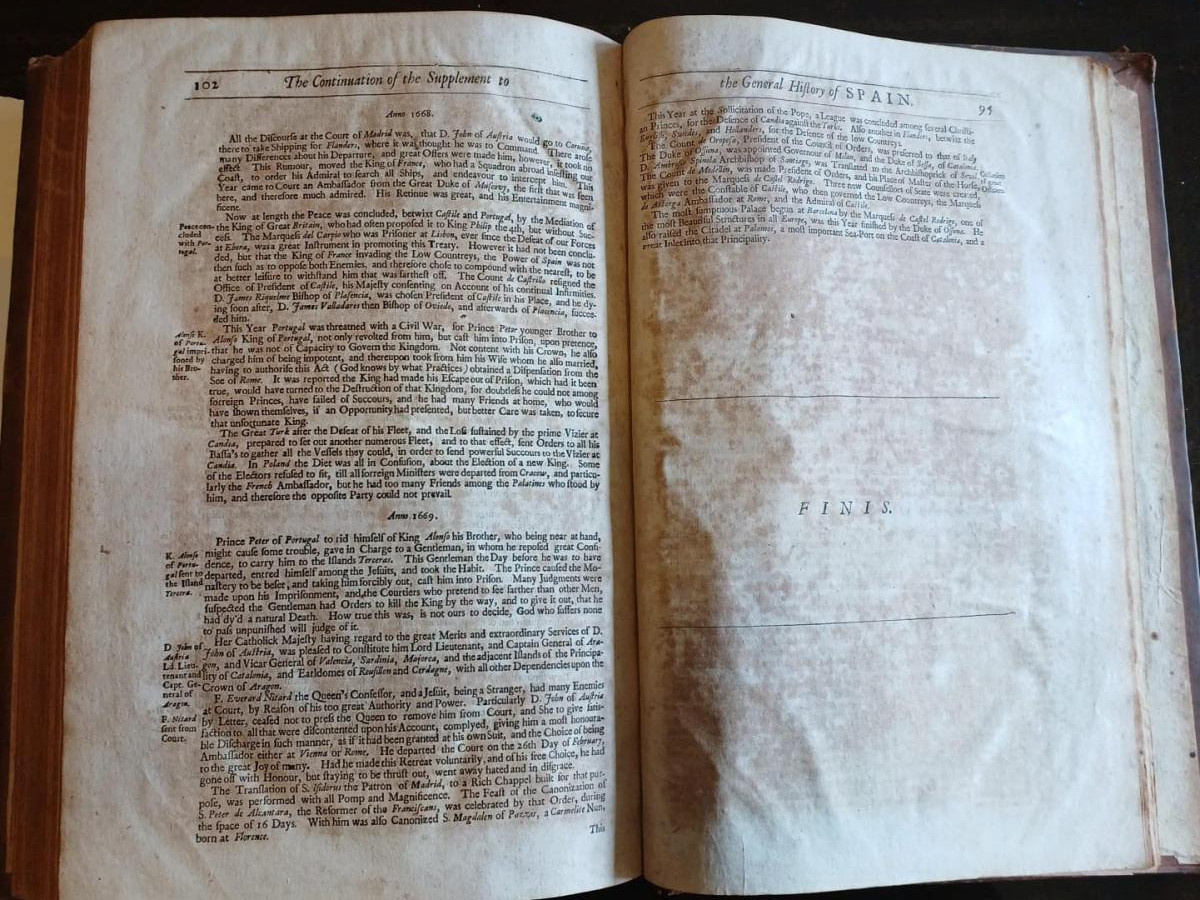 102 The Continuation of the Supplement to
Anno 1668.
All the Discourse at the Court of Madrid was, that D. John of Austria would go to Corunna,
there to take Shipping for Flanders, where it was thought he was to Command. There arose
many Differences about his Departure, and great Offers were made him, however, it took no
effect This Rumour, moved the King of France, who had a Squadron abroad infesting our
Coast, to order his Admiral to search all Ships, and endeavour to intercept him. This
Year came to Court an Ambassador from the Great Duke of Muscovy, the first that was seen
here, and therefore much admired. His Retinue was great, and his Entertainment magni-
ficent.
Peace con-
cluded
with Por-
tugal.
Now at length the Peace was concluded, betwixt Castile and Portugal, by the Mediation of
the King of Great Britain, who had often proposed it to King Philip the 4th, but without Suc-
cess. The Marquess del Carpio who was Prisoner at Lisbon, ever since the Defeat of our Forces
at Ebora, was a great Instrument in promoting this Treaty. However it had not been conclu-
ded, but that the King of France invading the Low Countreys, the Power of Spain was not
then such as to oppose both Enemies, and therefore chose to compound with the nearest, to be
at better leisure to withstand him that was farthest off. The Count de Castrillo resigned the
Office of President of Castile, his Majesty consenting on Account of his continual Infirmities.
D. James Riquelme Bishop of Plasencia, was chosen President of Castile in his Place, and he dy-
ing soon after, D. James Valladares then Bishop of Oviedo, and afterwards of Placencia, succee-
ded him.
Alonso K.
of Portu-
gal impri-
soned by
his Bro-
ther.
This Year Portugal was threatned with a Civil War, for Prince Peter younger Brother to
Alonso King of Portugal, not only revolted from him, but cast him into Prison, upon pretence,
that he was not of Capacity to Govern the Kingdom. Not content with his Crown, he also
charged him of being impotent, and thereupon took from him his Wife whom he also married,
having to authorise this Act (God knows by what Practices) obtained a Dispensation from the
See of Rome. It was reported the King had made his Escape out of Prison, which had it been
true, would have turned to the Destruction of that Kingdom, for doubtless he could not among
forreign Princes, have failed of Succours, and he had many Friends at home, who would
have shown themselves, if an Opportunity had presented, but better Care was taken, to secure
that unfortunate King.
The Great Turk after the Defeat of his Fleet, and the Loss sustained by the prime Vizier at
Candia, prepared to set out another numerous Fleet, and to that effect, sent Orders to all his
Bassa's to gather all the Vessels they could, in order to send powerful Succours to the Vizier at
Candia. In Poland the Diet was all in Confusion, about the Election of a new King. Some
of the Electors refused to sit, till all forreign Ministers were departed from Cracow, and particu-
larly the French Ambassador, but he had too many Friends among the Palatines who stood by
him, and therefore the opposite Party could not prevail.
Anno 1669.
K. Alonso
of Portu-
gal sent to
the Island
Tercera.
Prince Peter of Portugal to rid himself of King Alonso his Brother, who being near at hand,
might cause some trouble, gave in Charge to a Gentleman, in whom he reposed great Confi-
dence, to carry him to the Islands Terceras. This Gentleman the Day before he was to have
departed, entred himself among the Jesuits, and took the Habit. The Prince caused the Mo-
nastery to be beset, and taking him forcibly out, cast him into Prison. Many Judgments were
made upon his Imprisonment, and the Courtiers who pretend to see farther than other Men,
suspected the Gentleman had Orders to kill the King by the way, and to give it out, that he
had dy'd a natural Death. How true this was, is not ours to decide, God who suffers none
to pass unpunished will judge of it.
D John of
Austria
Ld. Lieu-
tenant and
Capt. Ge-
neral of
Aragon.
Her Catholick Majesty having regard to the great Merits and extraordinary Services of D.
John of Austria, was pleased to Constitute him Lord Lieutenant, and Captain General of Ara-
gon, and Vicar General of Valencia, Sardinia, Majorca, and the adjacent Islands of the Principa-
lity of Catalonia, and Earldomes of Rousillon and Cerdagne, with all other Dependencies upon the
Crown of Aragon.
F. Nitard
sent from
Court.
F. Everard Nitard the Queen's Confessor, and a Jesuit, being a Stranger, had many Enemies
at Court, by Reason of his too great Authority and Power. Particularly D. John of Austria
by Letter, ceased not to press the Queen to remove him from Court, and She to give satis-
faction to all that were discontented upon his Account, complyed, giving him a most honoura-
ble Discharge in such manner, as if it had been granted at his own Suit, and the Choice of being
Ambassador either at Vienna or Rome. He departed the Court on the 26th Day of February,
to the great Joy of many. Had he made this Retreat voluntarily, and of his free Choice, he had
gone off with Honour, but staying to be thrust out, went away hated and in disgrace.
The Translation of S. Isidorus the Patron of Madrid, to a Rich Chappel built for that pur-
pose, was performed with all Pomp and Magnificence. The Feast of the Canonization of
S. Peter de Alcantara, the Reformer of the Franciscans, was celebrated by that Order, during
the space of 16 Days. With him was also Canonized S. Magdalen of Pazzar, a Carmelite Nun,
born at Florence.
This
the General History of SPAIN. 95
This Year at the Sollicitation of the Pope, a League was concluded among several Christi-
an Princes, for the Defence of Candia against the Turks. Also another in Flanders, betwixt the
English, Swedes, and Hollanders, for the Defence of the low Countreys.
The Count de Oropesa, President of the Council of Orders, was preferred to that of Italy
The Duke of Ossuna, was appointed Governour of Milan, and the Duke of Sessa, of Catalonia.
D. Ambrose Spinola Archbishop of Santiago, was Translated to the Archbishoprick of Sevil
The Count de Medellin, was made President of Orders, and his Place of Master of the Horse,
was given to the Marquess de Castel Rodrigo. Three new Counsellors of State were created,
which were the Constable of Castile, who then governed the Low Countreys, the Marquess
de Astorga Ambassador at Rome, and the Admiral of Castile.
The most sumptuous Palace begun at Barcelona by the Marquess de Castel Rodrigo, one of
the most Beautiful Structures in all Europe, was this Year finished by the Duke of Ossuna. He
also raised the Citadel at Palamos, a most important Sea-Port on the Coast of Catalonia, and a
great Inlet into that Principality.
FINIS.